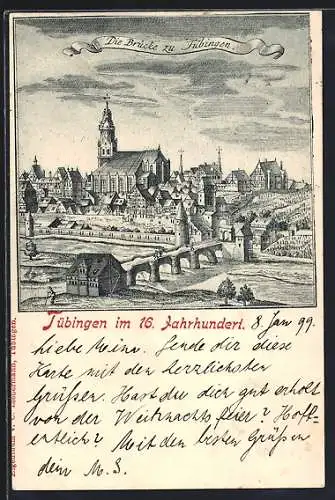 Die Brücke zu Tübingen.
Tübingen im 16. Jahrhundert. 8. Jan 99.
Liebe Sende dir diese
Karte mit den herzlichsten
Grüßen. Hast du dich gut erholt
von der Weihnachtsfeier? Hoff-
entlich? Mit den besten Grüßen
dein M. S.